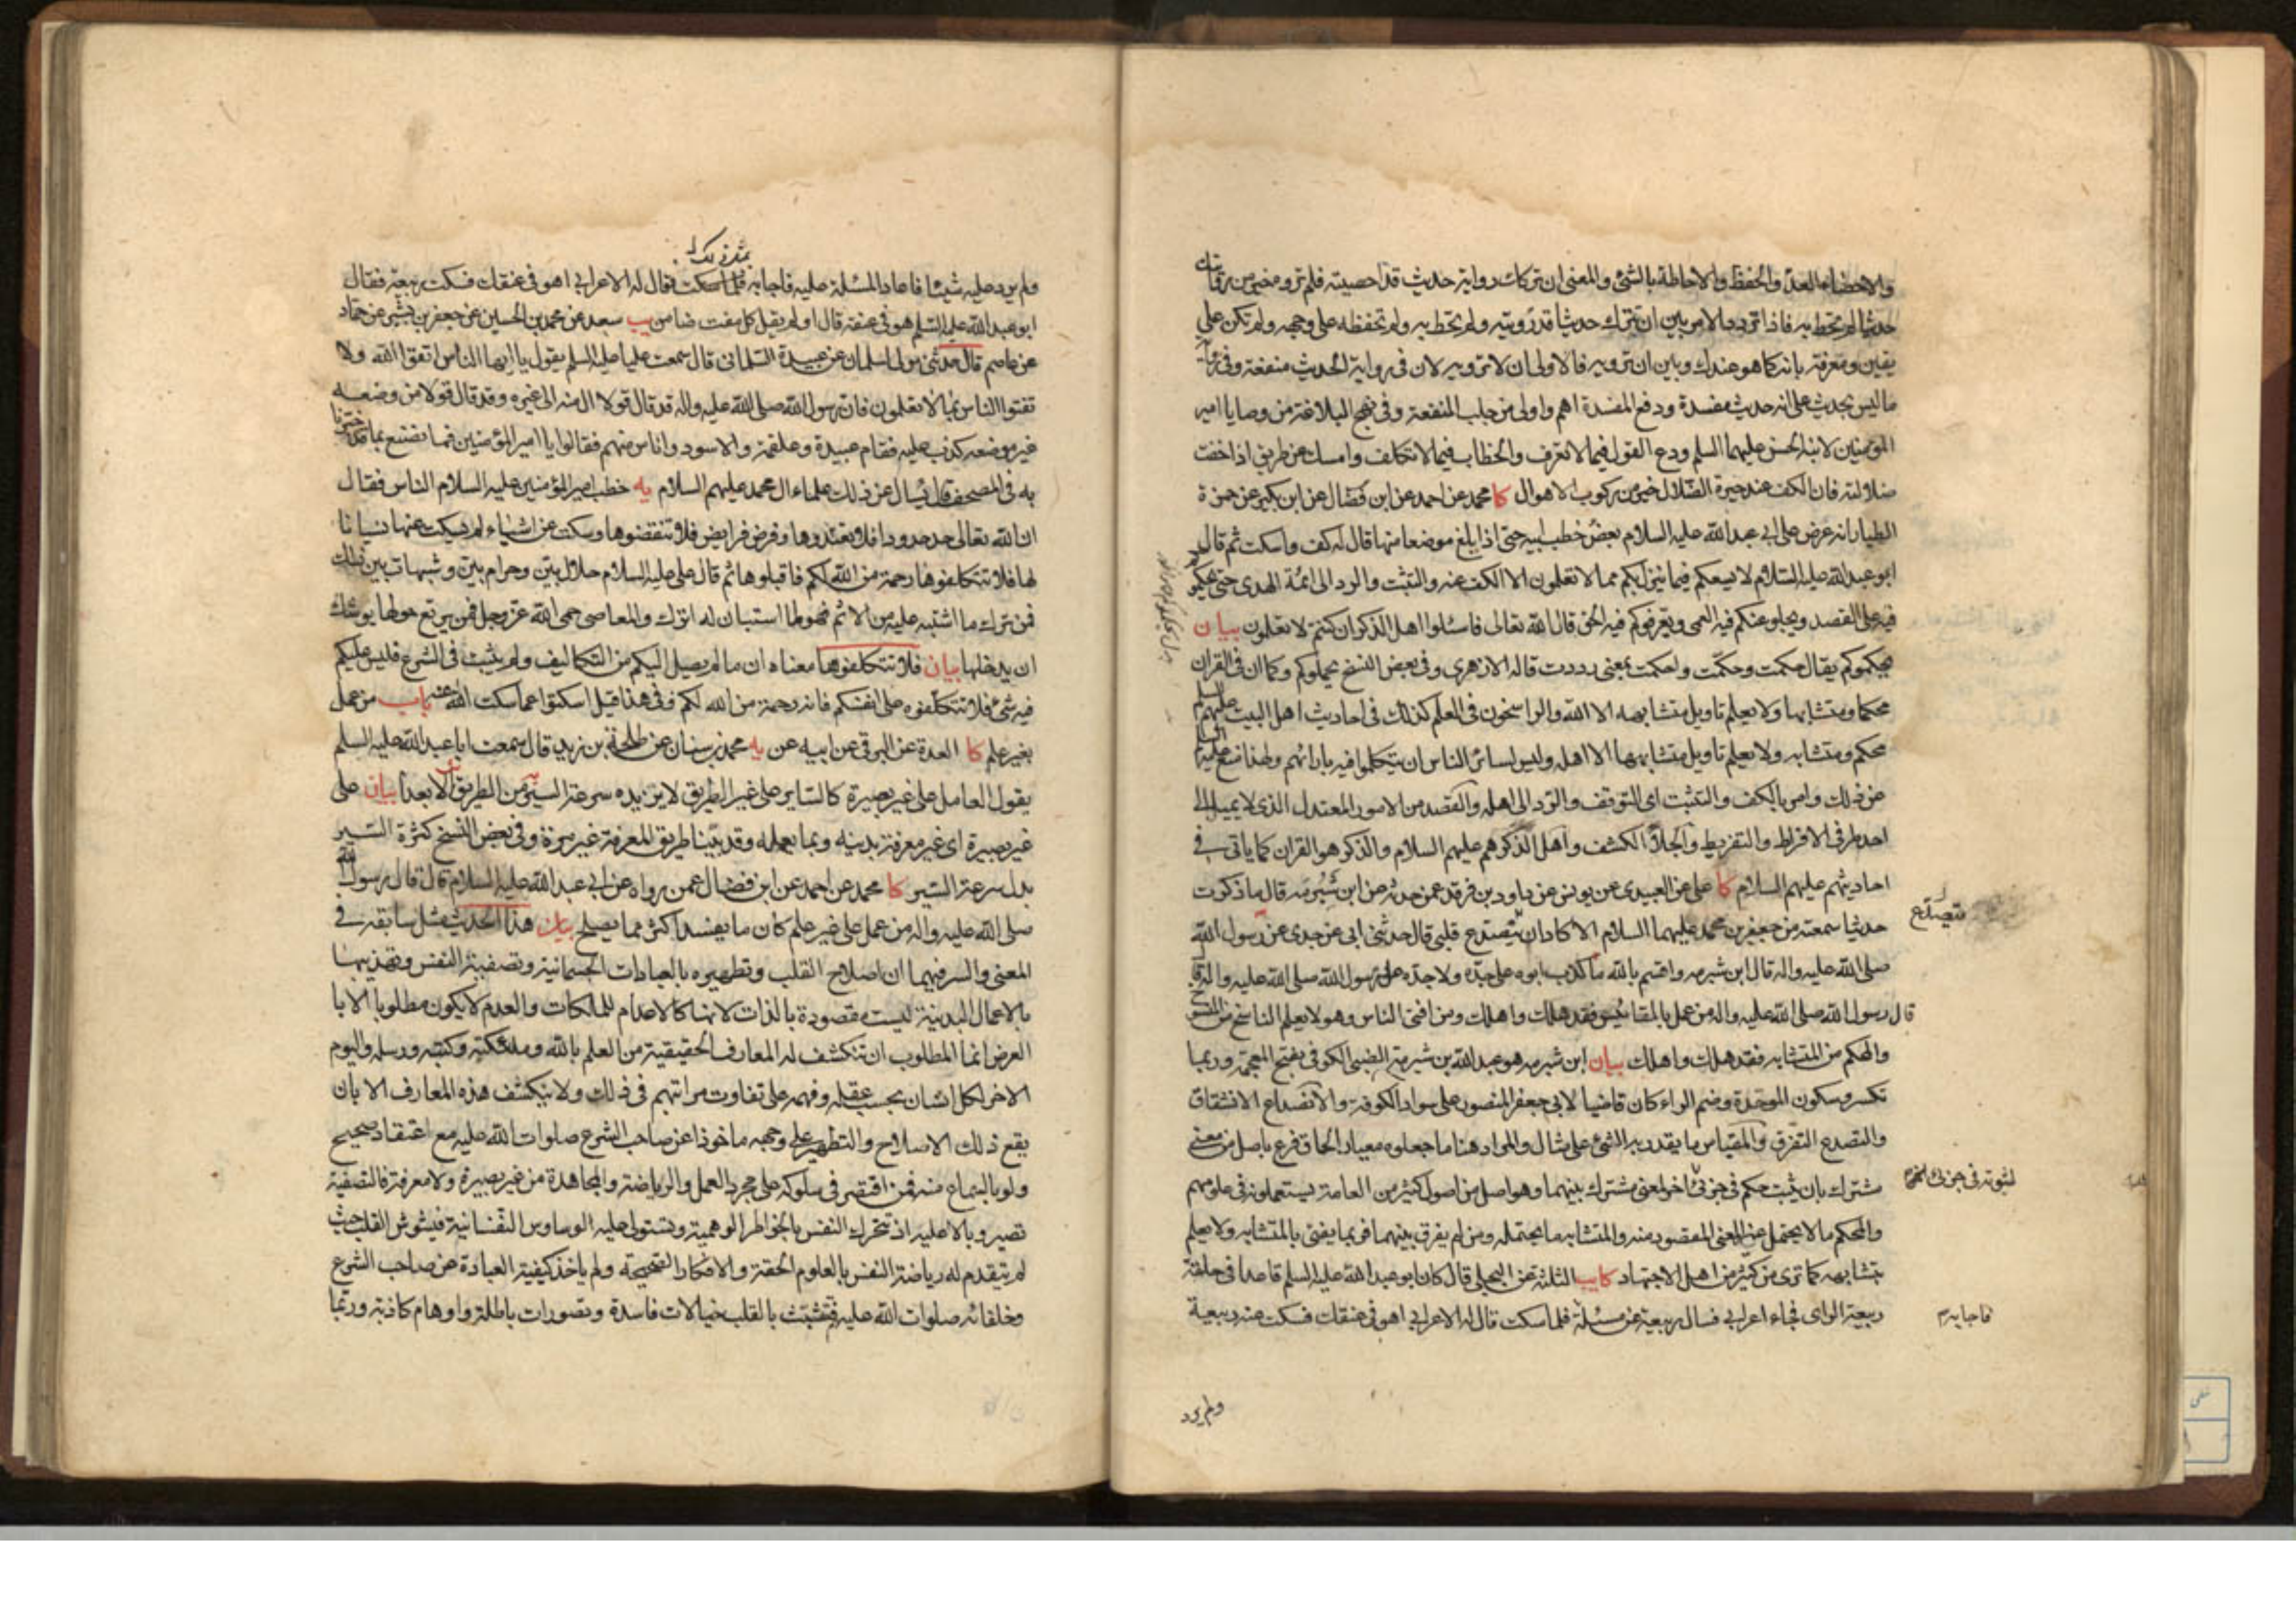 والاحصاء العدّ والحفظ والاحاطة بالشئ والمعنى ان تركك رواية حديث قد احصيته فلم تروه خير من روايتك
حديثا لم تحط به فاذا تردد الامر بين ان تترك حديثا قد رويته ولم تحط به ولم تحفظه على وجهه ولم تكن على
يقين ومعرفة بانه كما هو عندك وبين ان ترويه فالاولى ان لا ترويه لان فى رواية الحديث منفعة وفى رواية
ما ليس بحديث على انه حديث مفسدة ودفع المفسدة اهم واولى من جلب المنفعة وفى نهج البلاغة من وصايا امير
المؤمنين لابنه الحسن عليهما السلم ودع القول فيما لا تعرف والخطاب فيما لا تكلف وامسك عن طريق اذا خفت
ضلالته فان الكف عند حيرة الضلال خير من ركوب الاهوال كا محمد عن احمد عن ابن فضال عن ابن بكير عن حمزة
الطيار انه عرض على ابى عبد الله عليه السلام بعض خطب ابيه حتى اذا بلغ موضعا منها قال له كف واسكت ثم قال
ابو عبد الله عليه السلام لا يسعكم فيما ينزل بكم مما لا تعلمون الا الكف عنه والتثبت والرد الى ائمة الهدى حتى يحكموكم
فيه على القصد ويجلو عنكم فيه العمى ويعرفوكم فيه الحق قال الله تعالى فاسئلوا اهل الذكر ان كنتم لا تعلمون بيان
يحكموكم يقال حكمت وحكّمت واحكمت بمعنى رددت قاله الازهرى وفى بعض النسخ يحملوكم وكما ان فى القران
محكما ومتشابها ولا يعلم تاويل متشابهه الا الله والراسخون فى العلم كذلك فى احاديث اهل البيت عليهم السلم
محكم ومتشابه ولا يعلم تاويل متشابهها الا اهله وليس لسائر الناس ان يتكلموا فيه بارائهم ولهذا منع عليه السلم
عن ذلك وامر بالكف والتثبت اى التوقف والرد الى اهله والقصد من الامور المعتدل الذى لا يميل الى
احد طرفى الافراط والتفريط والجلاء الكشف واهل الذكر هم عليهم السلام والذكر هو القران كما ياتى فى
احاديثهم عليهم السلام كا على عن العبيدى عن يونس عن داود بن فرقد عمن حدثه عن ابن شبرمة قال ما ذكرت
حديثا سمعته من جعفر بن محمد عليهما السلام الا كاد ان يتصدع قلبى قال حدثنى ابى عن جدى عن رسول الله
يتصدّع
صلى الله عليه واله قال ابن شبرمه واقسم بالله ما كذب ابوه على جده ولا جده على رسول الله صلى الله عليه واله قال
قال رسول الله صلى الله عليه واله من عمل بالمقائيس فقد هلك واهلك ومن افتى الناس وهو لا يعلم الناسخ من المنسوخ
والمحكم من المتشابه فقد هلك واهلك بيان ابن شبرمه هو عبد الله بن شبرمة الضبى الكوفى بفتح المعجمة وربما
تكسر وسكون الموحدة وضم الراء كان قاضيا لابى جعفر المنصور على سواد الكوفة والانصداع الانشقاق
والتصدع التفرق والمقياس ما يقدر به الشئ على مثال والمراد هنا ما جعلوه معيار الحاق فرع باصل من معنى
مشترك بان يثبت حكم فى جزئى اخر لمعنى مشترك بينهما وهو اصل من اصول كثير من العامة يستعملونه فى علومهم
لثبوته فى جزئى
والمحكم ما لا يحتمل غير المعنى المقصود منه والمتشابه ما يحتمله ومن لم يفرق بينهما فربما يفتى بالمتشابه ولا يعلم
بتشابهه كما ترى من كثير من اهل الاجتهاد كا يب الثلثة عن البجلى قال كان ابو عبد الله عليه السلم قاعدا فى حلقة
ربيعة الراى فجاء اعرابى فسال ربيعة عن مسئلة فلما سكت قال له الاعرابى اهو فى عنقك فسكت عنه ربيعة
فاجابه م
ولم يرد
بمثل ذلك
ولم يرد عليه شيئا فاعاد المسئلة عليه فاجابه فلما سكت فقال له الاعرابى اهو فى عنقك فسكت ربيعة فقال
ابو عبد الله عليه السلم هو فى عنقه قال او لم يقل كل مفت ضامن يب سعد عن محمد بن الحسين عن جعفر بن بشير عن حماد
عن عاصم قال حدثنى مولى لسلمان عن عبيدة السلمانى قال سمعت عليا عليه السلم يقول يا ايها الناس اتقوا الله ولا
تفتوا الناس بما لا تعلمون فان رسول الله صلى الله عليه واله قد قال قولا ال منه الى غيره وقد قال قولا من وضعه
غير موضعه كذب عليه فقام عبيدة وعلقمة والاسود واناس منهم فقالوا يا امير المؤمنين فما نصنع بما قد خبرنا
به فى المصحف قال يسال عن ذلك علماء ال محمد عليهم السلام يه خطب امير المؤمنين عليه السلام الناس فقال
ان الله تعالى حد حدودا فلا تعتدوها وفرض فرايض فلا تنقضوها وسكت عن اشياء لم يسكت عنها نسيانا
لها فلا تتكلفوها رحمة من الله لكم فاقبلوها ثم قال على عليه السلام حلال بين وحرام بين وشبهات بين ذلك
فمن ترك ما اشتبه عليه من الاثم فهو لما استبان له اترك والمعاصى حمى الله عز وجل فمن يرتع حولها يوشك
ان يدخلها بيان فلا تتكلفوها معناه ان ما لم يصل اليكم من التكاليف ولم يثبت فى الشرع فليس عليكم
فيه شئ فلا تتكلفوه على انفسكم فانه رحمة من الله لكم وفى هذا قيل اسكتوا عما سكت الله عنه باب من عمل
بغير علم كا العدة عن البرقى عن ابيه عن يه محمد بن سنان عن طلحة بن زيد قال سمعت ابا عبد الله عليه السلم
يقول العامل على غير بصيرة كالساير على غير الطريق لا يزيده سرعة السير من الطريق الا بعدا بيان على
غير بصيرة اى غير معرفة بدينه وبما يعمله وقد بيّنا طريق المعرفة غير مرة وفى بعض النسخ كثرة السير
بدل سرعة السير كا محمد عن احمد عن ابن فضال عمن رواه عن ابى عبد الله عليه السلام قال قال رسول الله
صلى الله عليه واله من عمل على غير علم كان ما يفسد اكثر مما يصلح بيان هذا الحديث مثل سابقه فى
المعنى والسر فيهما ان اصلاح القلب وتطهيره بالعبادات الجسمانية وتصفية النفس وتهذيبها
بالاعمال البدنية ليست مقصودة بالذات لانها كالاعدام للملكات والعدم لا يكون مطلوبا الا با
لعرض انما المطلوب ان تنكشف له المعارف الحقيقية من العلم بالله وملئكته وكتبه ورسله واليوم
الاخر لكل انسان بحسب عقله وفهمه على تفاوت مراتبهم فى ذلك ولا ينكشف هذه المعارف الا بان
يقع ذلك الاصلاح والتطهير على وجهه ماخوذا عن صاحب الشرع صلوات الله عليه مع اعتقاد صحيح
ولو بالسماع منه فمن اقتصر فى سلوكه على مجرد العمل والرياضة والمجاهدة من غير بصيرة ولا معرفة فالتصفية
تصير وبالا عليه اذ تتحرك النفس بالخواطر الوهمية وتستولى عليه الوساوس النفسانية فيشوش القلب حيث
لم يتقدم له رياضة النفس بالعلوم الحقة والافكار الصحيحة ولم ياخذ كيفية العبادة عن صاحب الشرع
وخلفائه صلوات الله عليهم فتتشبث بالقلب خيالات فاسدة وتصورات باطلة واوهام كاذبة وربما